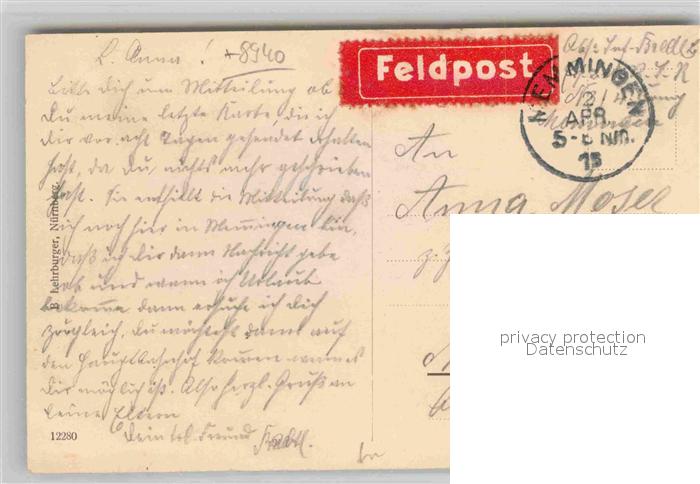 L. Anna! +8940
Bitte dich um Mitteilung ob
Du meine letzte Karte, die ich
dir vor acht Tagen gesendet erhalten
hast, da du, nichts mehr geschrieben
hast. Sie enthielt die Mitteilung daß
ich noch hier in Memmingen bin,
daß ich dir dann Nachricht gebe
ob und wann ich Urlaub
bekomme dann ersuche ich dich
zugleich, du möchtest dann auf
den Hauptbahnhof kommen wenn es
dir möglich ist. Also herzl. Gruß an
deine Eltern
Dein Freund
12280
B. Lehrburger, Nürnberg
Feldpost
MEMMINGEN
APR.
5-6 Nm.
15
Abs: Inf.
An
Anna Moser
z.
privacy protection
Datenschutz